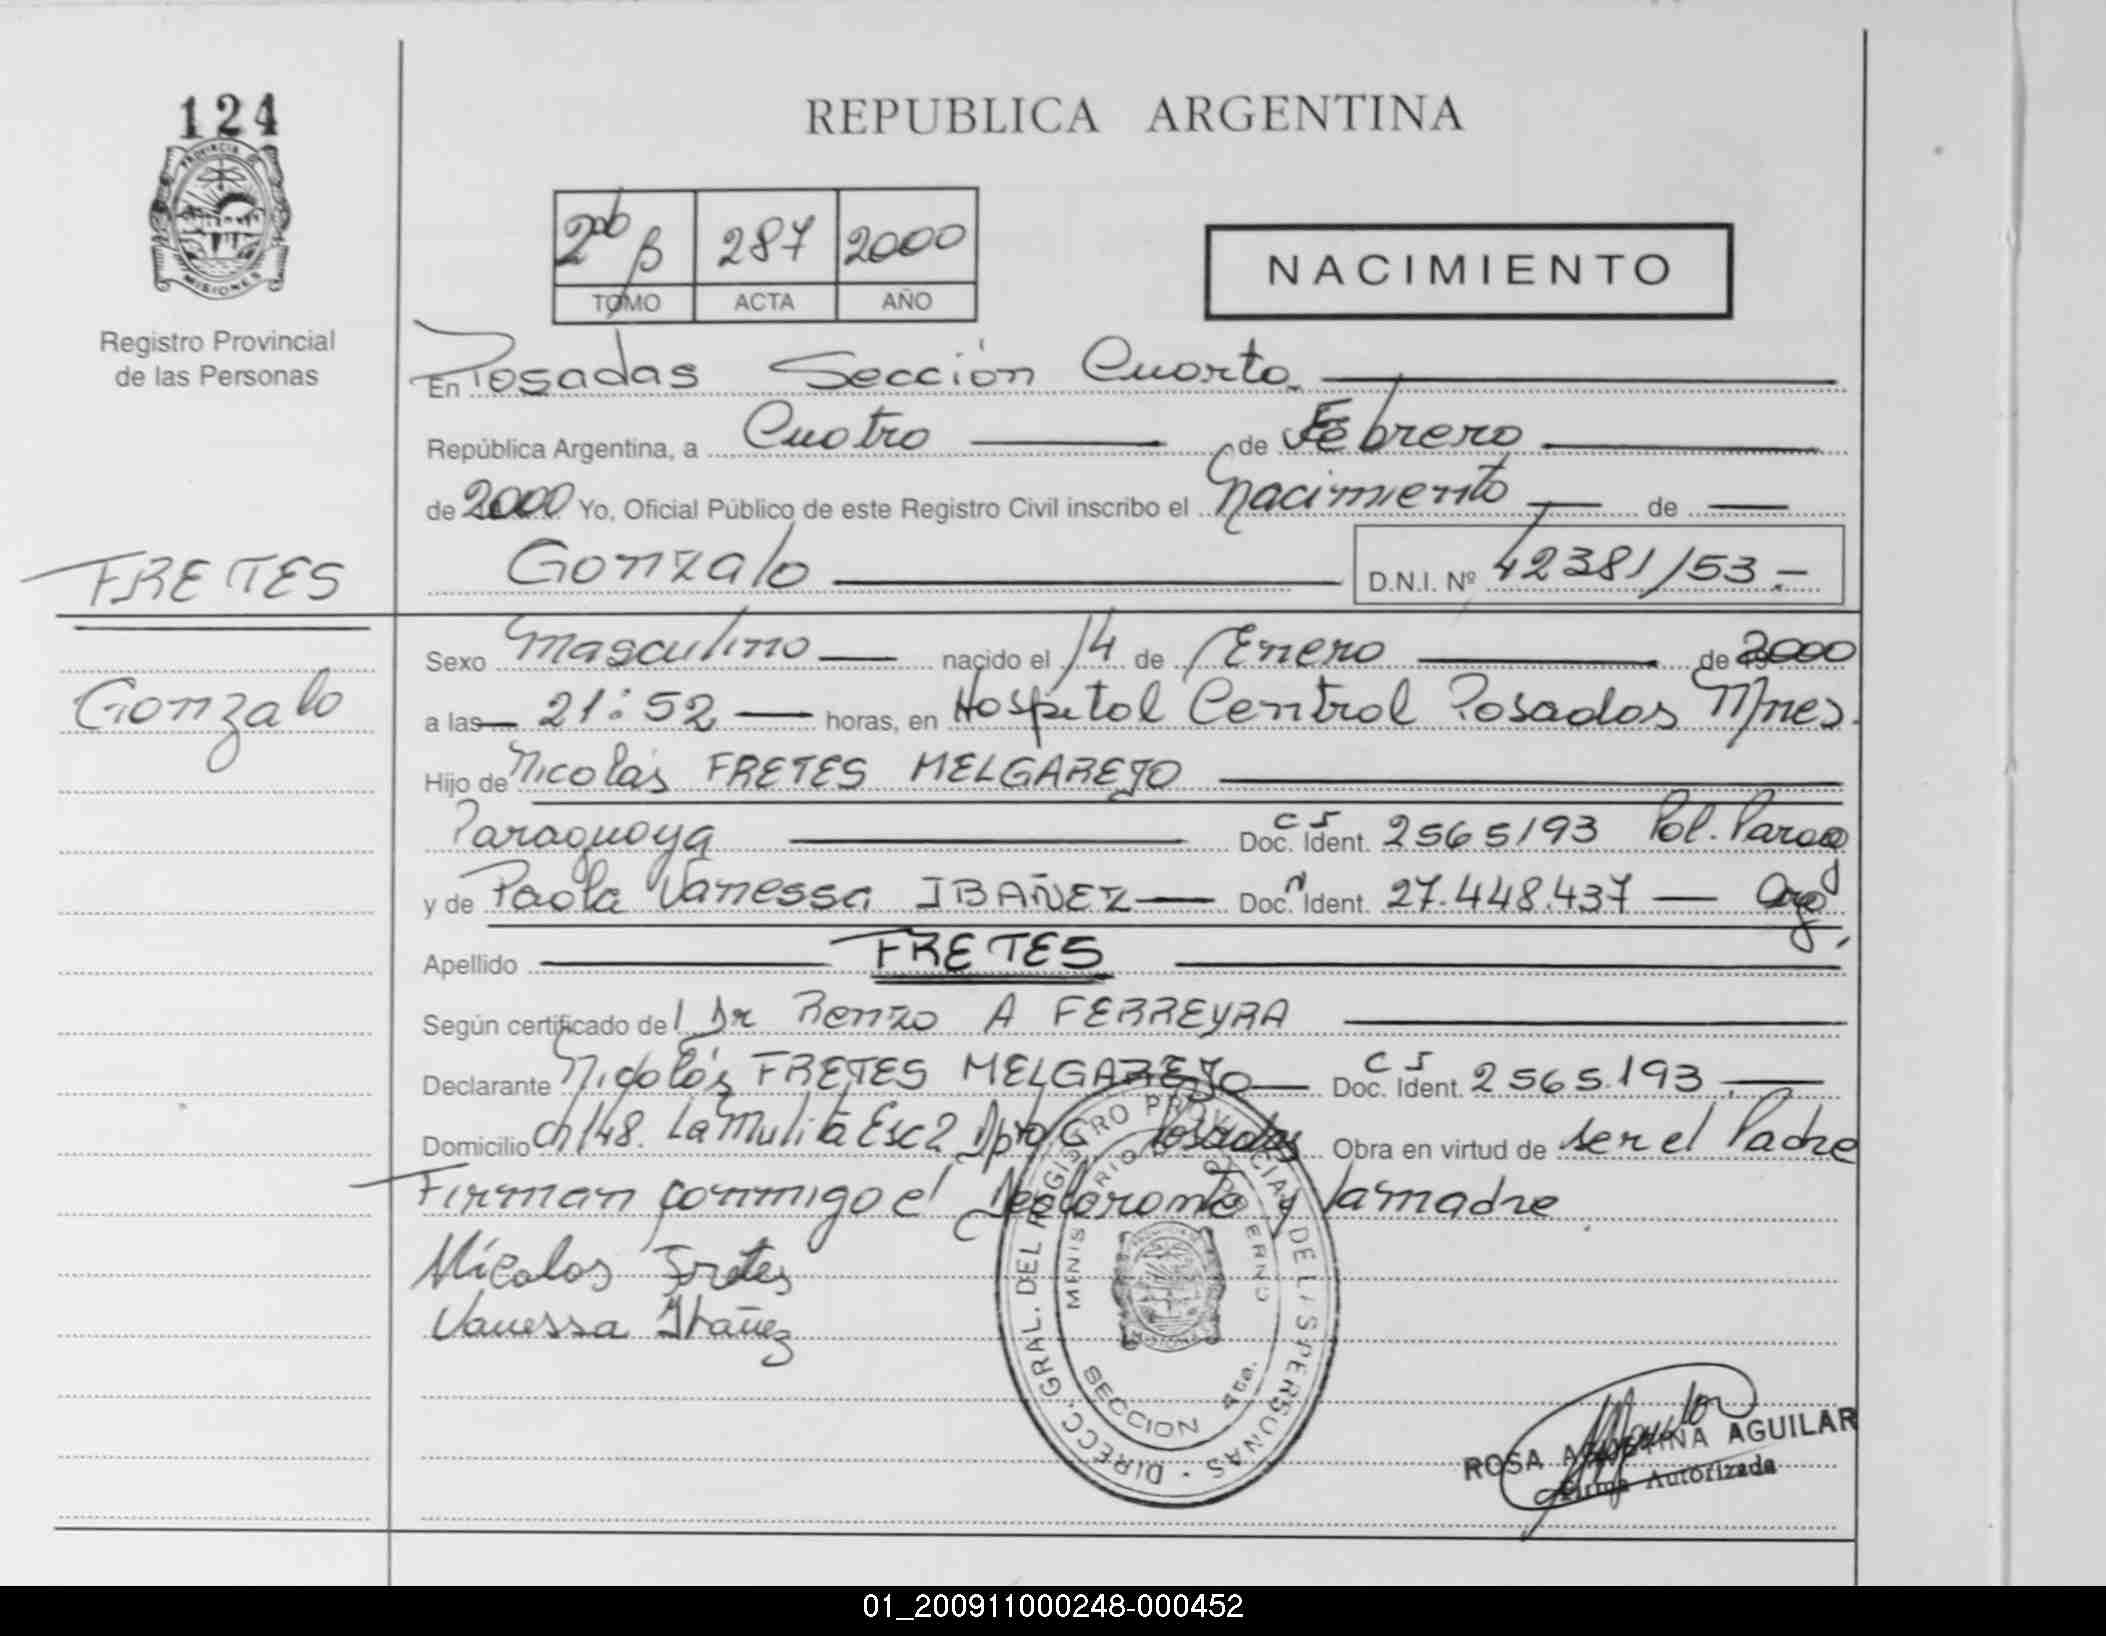 124
PROVINCIA DE
MISIONES
Registro Provincial
de las Personas
REPUBLICA ARGENTINA
2do B 287 2000
TOMO ACTA AÑO
NACIMIENTO
En Posadas Sección Cuarta
República Argentina, a Cuatro de Febrero
de 2000 Yo, Oficial Público de este Registro Civil inscribo el Nacimiento de
Gonzalo D.N.I. Nº 42381153.-
FRETES
Gonzalo
Sexo Masculino nacido el 14 de Enero de 2000
a las 21:52 horas, en Hospital Central Posadas Mnes.
Hijo de Nicolás FRETES MELGAREJO
Paraguaya Doc. Ident. C I 2565193 Pol. Parag
y de Paola Vanessa IBAÑEZ Doc. N Ident. 27.448.437 Arg
Apellido FRETES
Según certificado del Dr Renzo A FERREYRA
Declarante Nicolás FRETES MELGAREJO Doc. Ident. C I 2565.193
Domicilio ch 148. La Mulita Esc 2 Dpto C Posadas Obra en virtud de ser el Padre
Firman conmigo el Declarante y la madre
Nicolas Fretes
Vanessa Ibañez
DIRECC. GRAL. DEL REGISTRO PROVINCIAL DE LAS PERSONAS
MINISTERIO DE GOBIERNO
SECCION 4ta.
ROSA AGUSTINA AGUILAR
Firma Autorizada
01_200911000248-000452